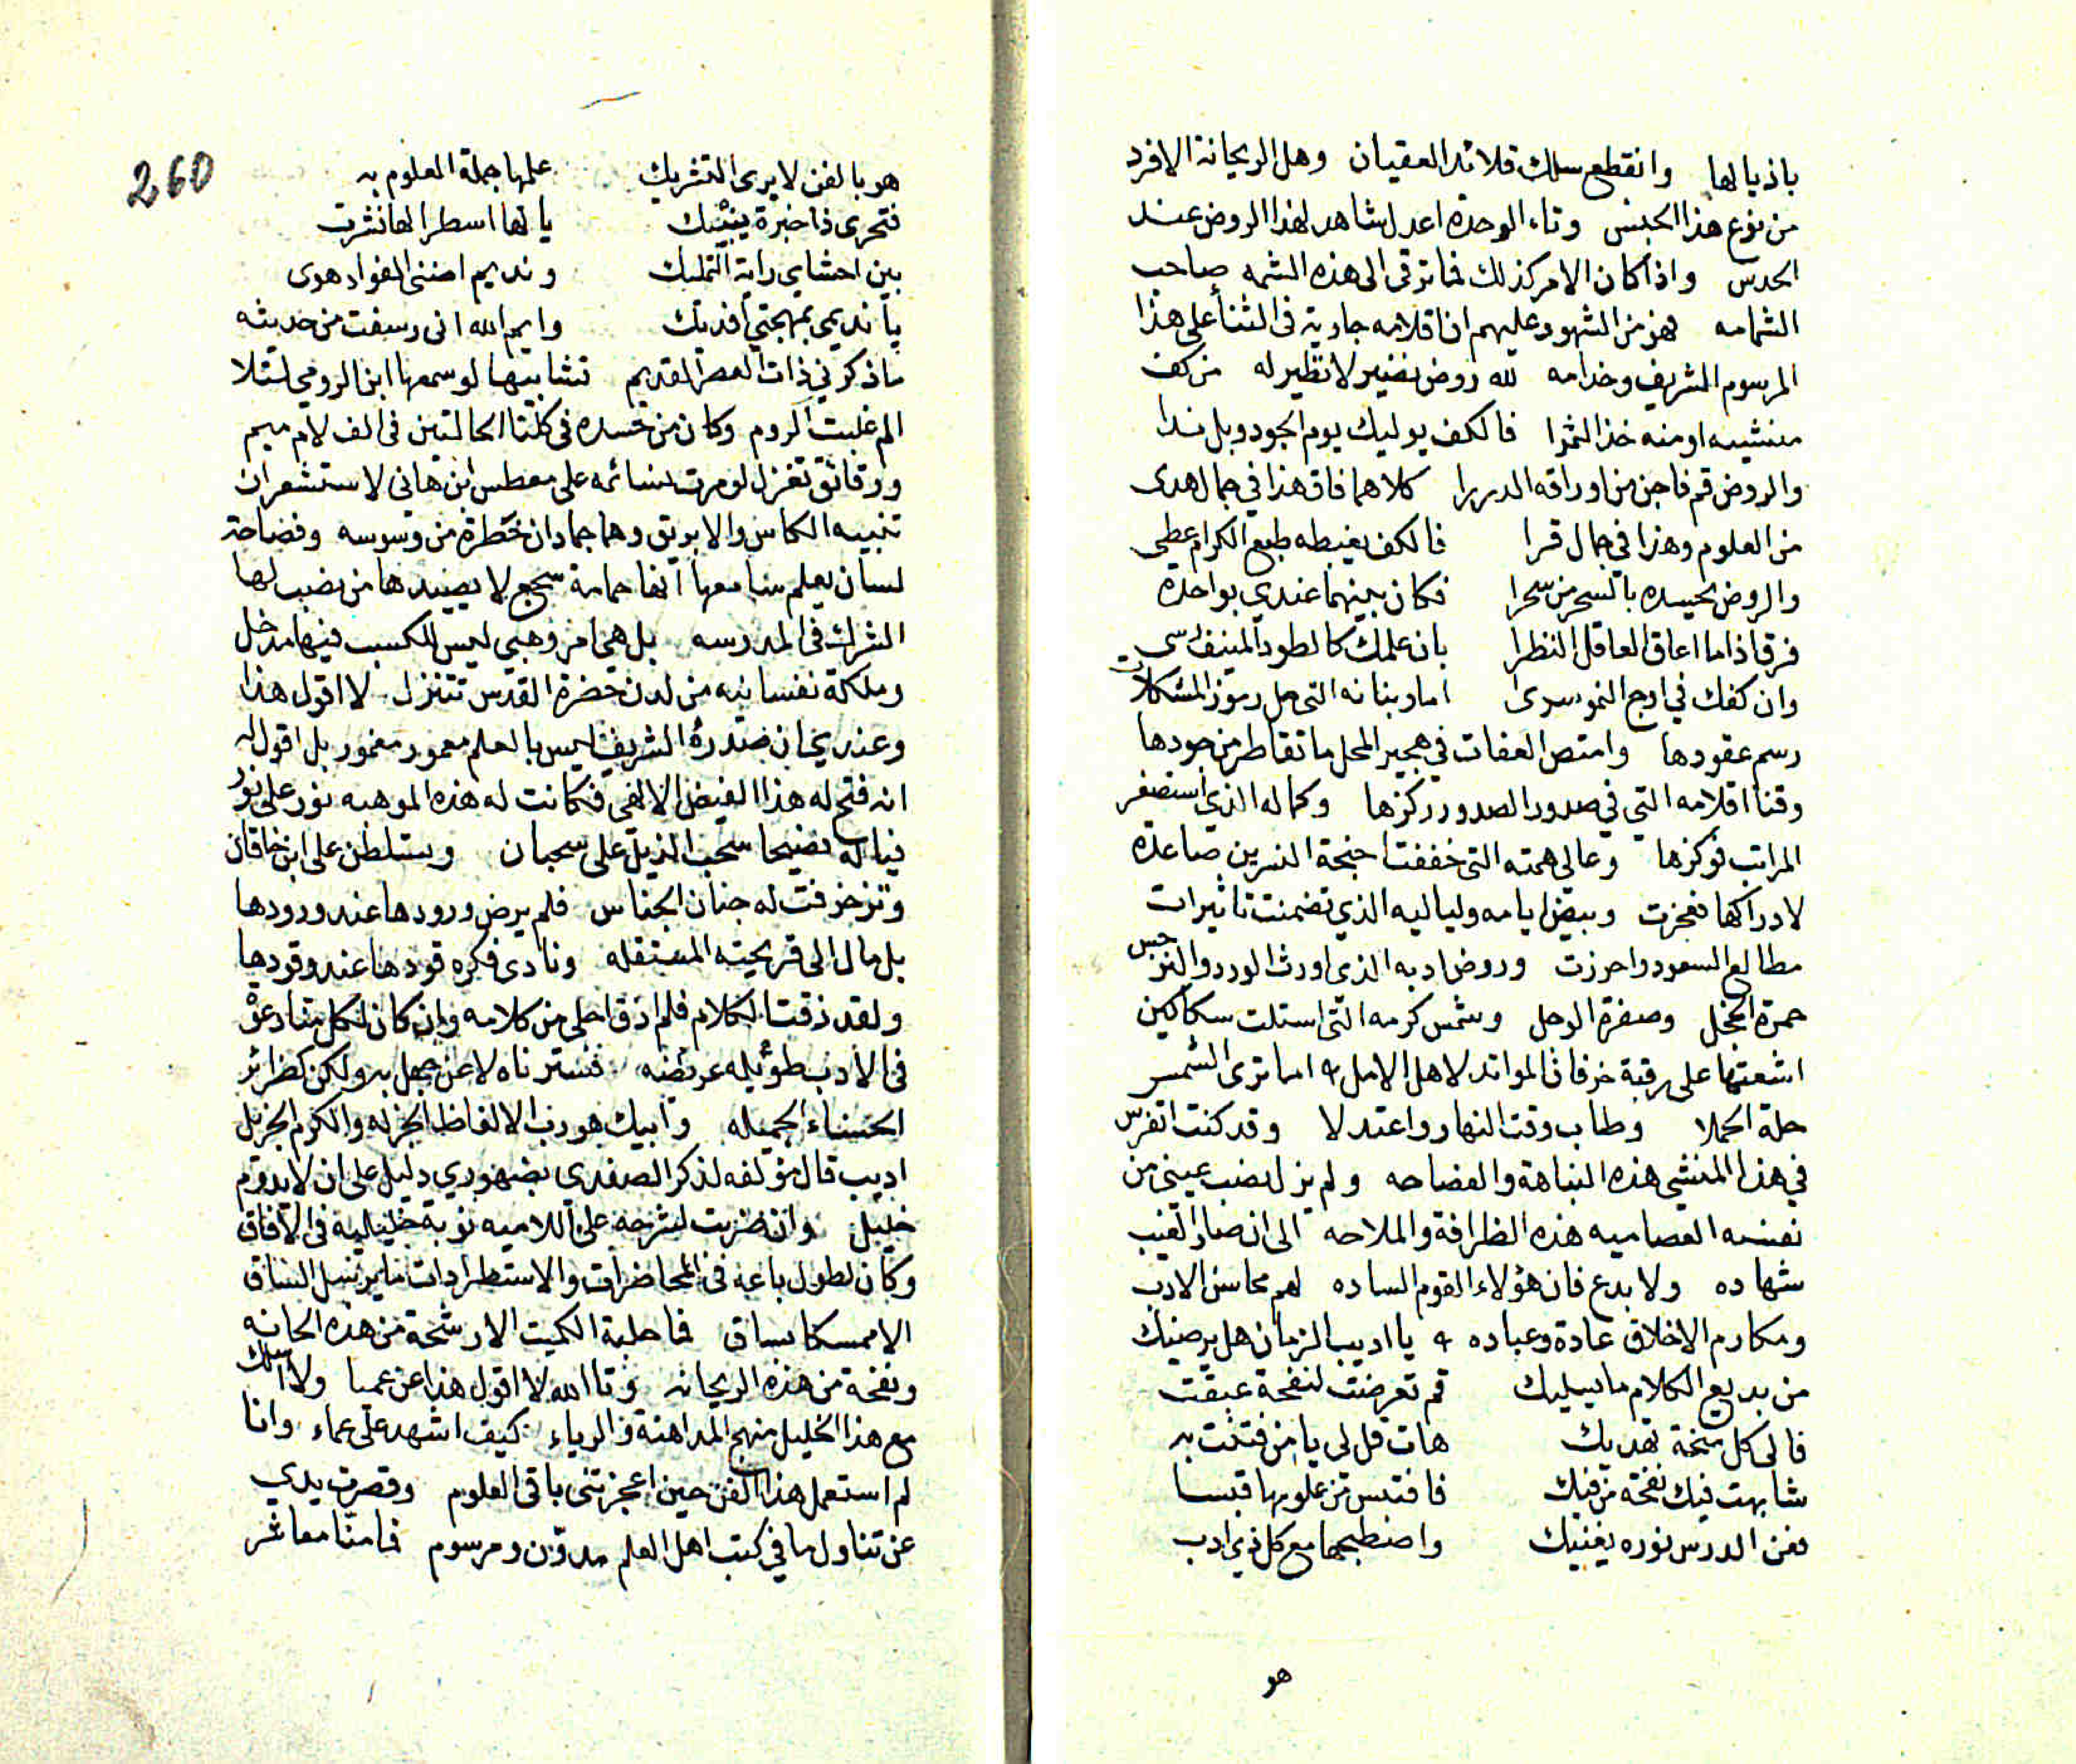 باذيالها وانقطع سلك قلائد العقيان وهل الريحانة الافرد
من نوع هذا الجنس وتاء الوحدة اعدل شاهد لهذا الروض عند
الحدس واذا كان الامر كذلك فما ترقى الى هذه الشمه صاحب
الشمامه فهو من الشهود عليهم ان اقلامه جارية في الثنا على هذا
المرسوم الشريف وخدامه لله روض نضير لا نظير له من كف
منشيه او منه خذ الثمرا فالكف يوليك يوم الجود وبل ندا
والروض قم فاجن من اوراقه الدررا كلاهما فاق هذا في جمال هدى
من العلوم وهذا في جمال قرا فالكف يغبطه طبع الكرام عطى
والروض يحسده بالسحر من سحرا فكان بينهما عندي بواحدة
فرقا اذا ما اعاق العاقل النظرا بان علمك كالطود المنيف سى
وان كفك في اوج النمو سرى اما وبنانه التي حل رموز المشكلات
رسم عقودها وامتص العفات في هجير المحل ما تقاطر من جودها
وقنا اقلامه التي في صدور الصدور ركزها وكماله الذي استصغر
المراتب فوكزها وعالي همته التي خففت اجنحة النسرين صاعدة
لادراكها فعجزت وبيض ايامه ولياليه الذي تضمنت تاثيرات
مطالع السعود واحرزت وروض ادبه الذي اورث الورد والنرجس
حمرة الخجل وصفرة الوجل وشمس كرمه التي استلت سكاكين
اشعتها على رقبة خرفان الموائد لاهل الامل اما ترى الشمس
حلة الحملا وطاب وقت النهار واعتدلا وقد كنت اتفرس
في هذا المنشي هذه النباهة والفصاحه ولم يزل نصب عيني من
نفسه العصاميه هذه الظرافة والملاحه الى ان صار الغيب
شهاده ولا بدع فان هؤلاء القوم الساده لهم محاسن الادب
ومكارم الاخلاق عادة وعباده يا اديب الزمان هل يرضيك
من بديع الكلام ما يسليك قم تعرضت لنفحة عبقت
فالى كل نفحة تهديك هات قل لي يا من فتنت به
شابهت فيك نفحة من فيك فاقتبس من علومها قبسا
فعن الدرس نوره يغنيك واصطبحها مع كل ذي ادب
هو
260
هو بالفن لا يرى التشريك علمها جملة العلوم به
فتحرى ذا خبرة ينبيك يا لها اسطرا لها نثرت
بين احشاي راية التمليك ونديم اضنى الفؤاد هوى
يا نديمي بمهجتي افديك وايم الله اني رسفت من حديثه
ما ذكرني ذات العصر القديم تشابيها لو سمعها ابن الرومي لتلا
الم غلبت الروم وكان من حسده في كلتا الحالتين في الف لام ميم
ورقائق تغزل لو مرت نسائمه على معطس ابن هاني لاستشعر ان
تنبيه الكاس والابريق وهما جمادان خطرة من وسوسه وفصاحة
لسان يعلم سامعها انها حمامة سجع لا يصيدها من نصب لها
الشراك في المدرسه بل هي امر وهبي ليس للكسب فيها مدخل
وملكة نفسانيه من لدن حضرة القدس تتنزل لا اقول هذا
وعندي ان صدره الشريف ليس بالعلم معمور مغمور بل اقول له
انه فتح له هذا الفيض الالهي فكانت له هذه الموهبه نور على نور
فياله فصيحا سحب الذيل على سحبان وسلطن على ابن خاقان
وتزخرفت له جنان الجناس فلم يرض ورودها عند ورودها
بل مال الى قريحته المستقله ونادى فكره قودها عند وقودها
ولقد ذقت الكلام فلم اذق احلى من كلامه وان كان لكل منا دعوى
في الادب طويله عريضه فسترناه لا عن جهل به ولكن كضرائر
الحسناء الجميله وابيك هو رب الالفاظ الجزله والكرم الجزيل
اديب قال مؤلفه لذكر الصفدي بضهوري دليل على ان لا يدوم
خليل وان ضربت لشرحه على اللاميه نوبة خليليه في الافاق
وكان لطول باعه في المحاضرات والاستطرادات ما يرسل الساق
الا ممسكا ساق فما حلبة الكميت الا رشحة من هذه الحانه
ونفحة من هذه الريحانه وتا الله لا اقول هذا عن عمبا ولا اسلك
مع هذا الخليل منهج المداهنة والرياء كيف اشهد على عماء وانا
لم استعمل هذا الفن حين اعجزتني باقي العلوم وقصرت يدي
عن تناول ما في كتب اهل العلم مدون ومرسوم فامنا معاشر